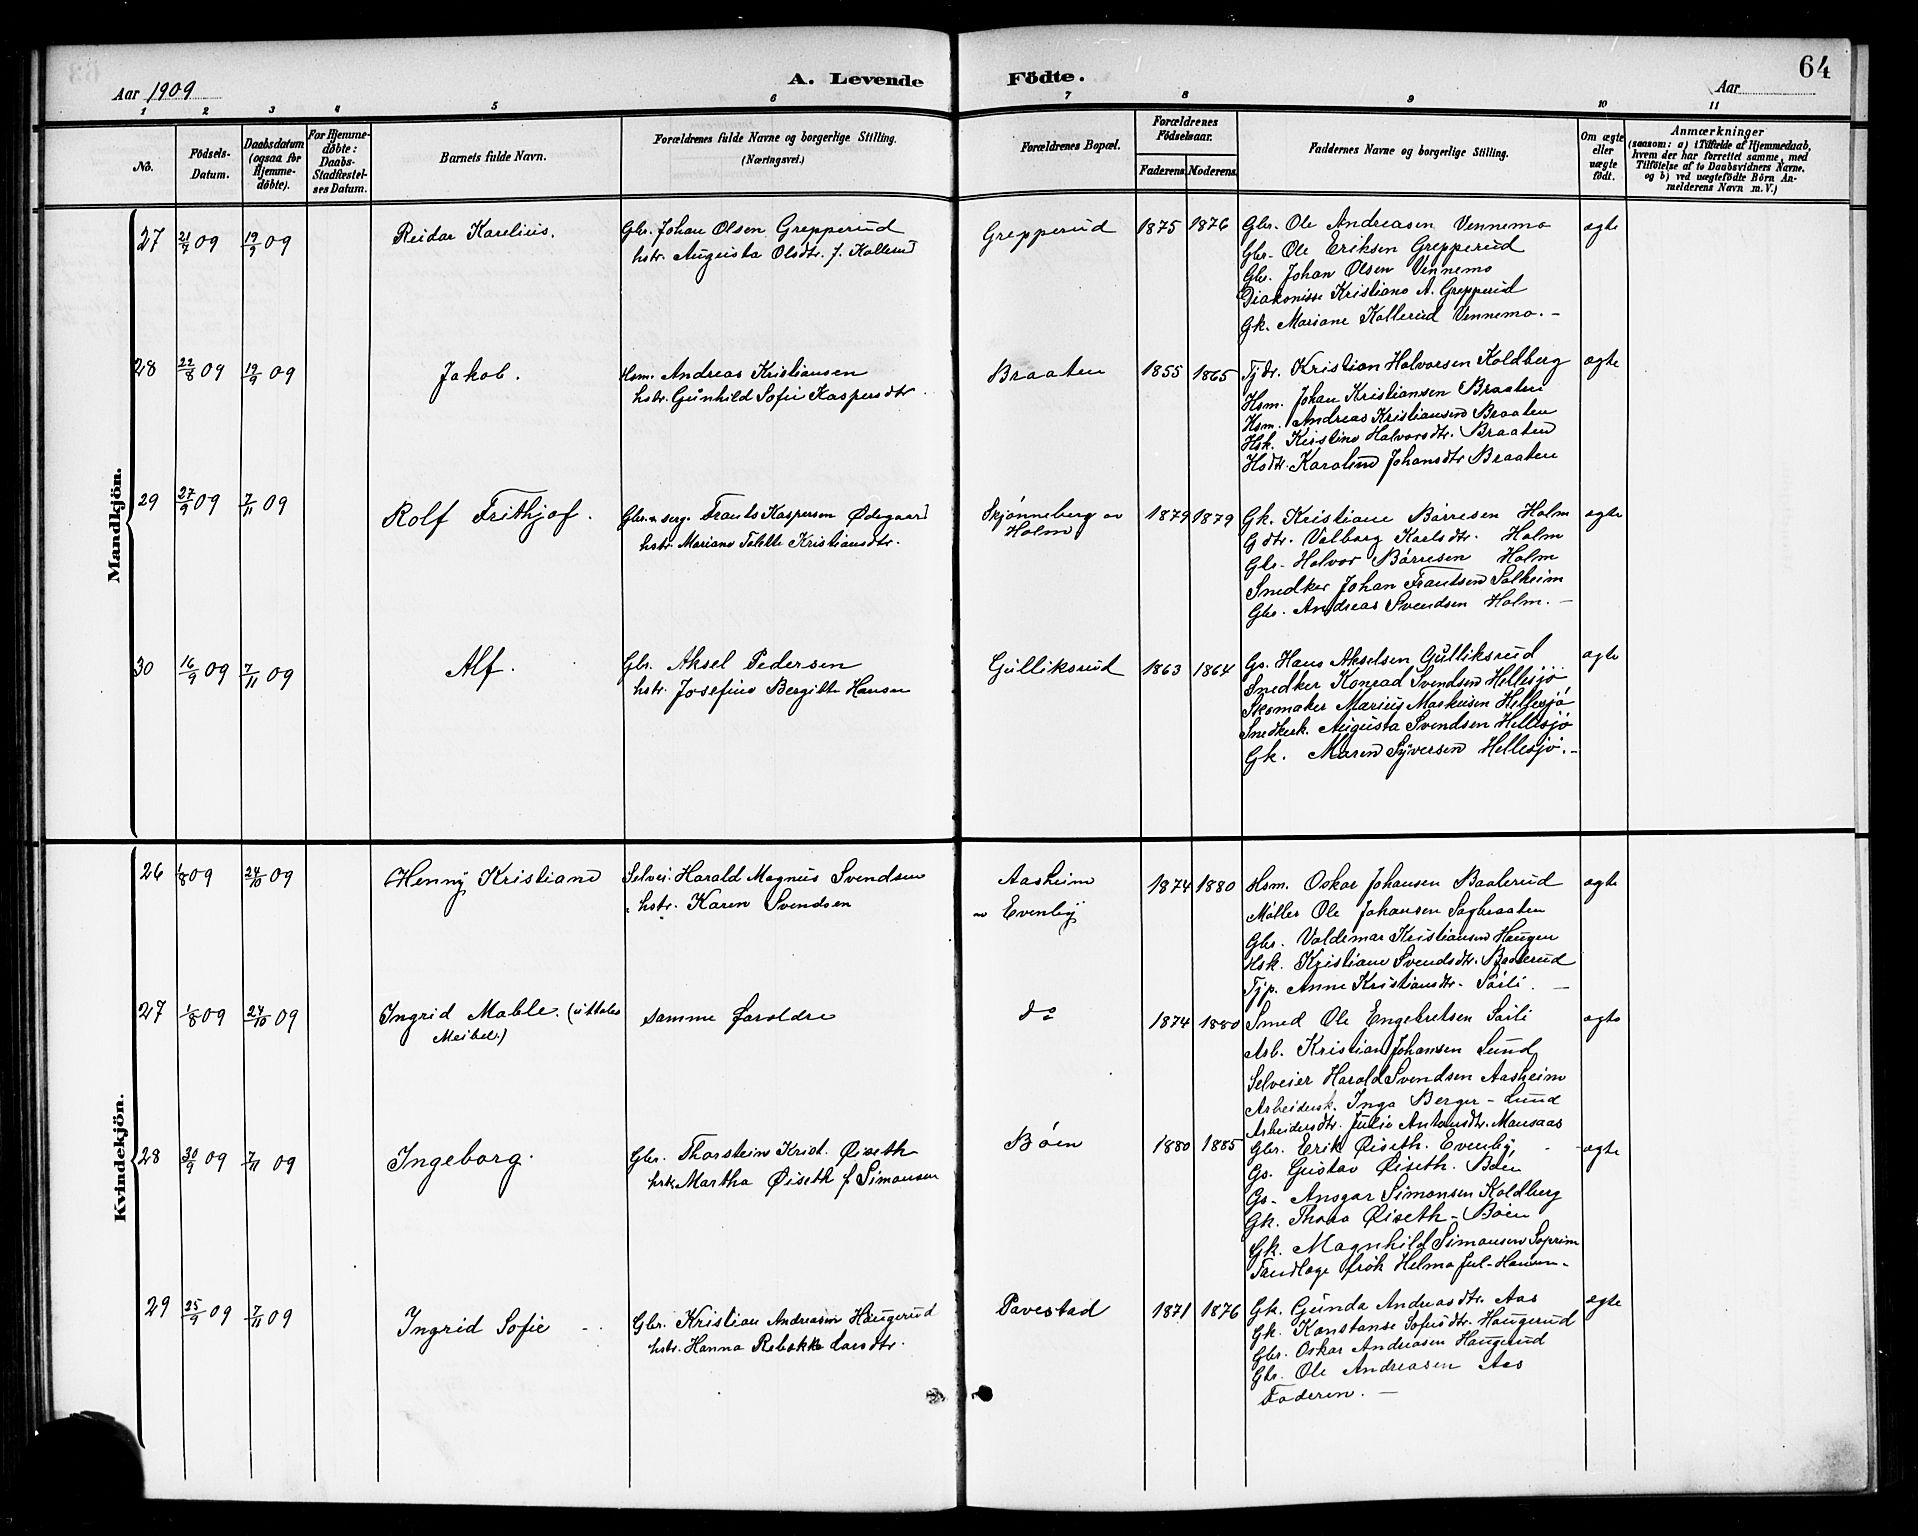 64
Aar 1909
A. Levende Födte.
Aar
1 2 3 4 5 6 7 8 9 10 11
No.
Födsels-Datum.
Daabsdatum (ogsaa for Hjemme-döbte).
For Hjemme-döbte: Daabs-Stadfæstel-ses Datum.
Barnets fulde Navn.
Forældrenes fulde Navne og borgerlige Stilling.
(Næringsvei.)
Forældrenes Bopæl.
Forældrenes Födselsaar.
Faderens. Moderens.
Faddernes Navne og borgerlige Stilling.
Om ægte eller uægte födt.
Anmærkninger
(saasom: a) i Tilfælde af Hjemmedaab,
hvem der har forrettet samme, med
Tilföielse af to Daabsvidners Navne.
og b) ved uægtefödte Börn An-
melderens Navn m. V.)
Mandkjön.
27 21/7 09 19/9 09 Reidar Karelius. Gbr. Johan Olsen Grepperud Grepperud 1875 1876 Gbr. Ole Andreasen Vennemo ægte
hstr. Augusta Olsdtr. f. Kollerud Gbr. Ole Eriksen Grepperud
Gbr. Johan Olsen Vennemo
Diakonisse Kristiane A. Grepperud
Gk. Mariane Kollerud Vennemo. -
28 22/8 09 19/9 09 Jakob. Hsm. Andreas Kristiansen Braaten 1855 1865 Tjdr. Kristian Halvorsen Koldberg ægte
hstr. Gunhild Sofie Kaspersdtr. Hsm. Johan Kristiansen Braaten
Hsm. Andreas Kristiansen Braaten
Hsk. Kristine Halvorsdtr. Braaten
Hsdtr. Karoline Johansdtr Braaten
29 27/9 09 7/11 09 Rolf Frithjof. Gbr. & serg. Frants Kaspersen Ødegaard Skjønneberg av 1879 1879 Gk. Kristiane Børresen Holm ægte
hstr. Mariane Talette Kristiansdtr. Holm Gdtr. Valborg Karlsdtr. Holm
Gbr. Halvor Børresen Holm
Snedker Johan Frantsen Solheim
Gbr. Andreas Svendsen Holm. -
30 16/9 09 7/11 09 Alf. Gbr. Aksel Pedersen Gulliksrud 1863 1864 Gs. Hans Akselsen Gulliksrud ægte
hstr. Josefine Bergitte Hansen Snedker Konrad Svendsen Hellesjø
Skomaker Marius Markusen Hellesjø
Snedkerk. Augusta Svendsen Hellesjø
Gk. Maren Syversen Hellesjø. -
Kvindekjön.
26 1/8 09 24/10 09 Henny Kristiane Selvei. Harald Magnus Svendsen Aasheim 1874 1880 Hsm. Oskar Johansen Baalerud ægte
hstr. Karen Svendsen av Evenby Møller Ole Johansen Sagbraaten
Gbr. Valdemar Kristiansen Haugen
Hsk. Kristiane Svendsdtr. Baalerud
Tjp. Anne Kristiansdtr. Sørli. -
27 1/8 09 24/10 09 Ingrid Mable. (uttales samme foreldre do 1874 1880 Smed Ole Engebretsen Sørli ægte
Meibel.) Arb. Kristian Johansen Lund
Selveier Harald Svendsen Aasheim
Arbeidersk. Inga Berger - Lund
Arbeidersdtr. Julie Antonsdtr. Mansaas
28 30/9 09 7/11 09 Ingeborg. Gbr. Thorstein Krist. Øiseth Bøen 1880 1885 Gbr. Erik Øiseth. Evenby, - ægte
hrk Martha Øiseth f Simonsen Gs. Gustav Øiseth. Bøen
Gs. Ansgar Simonsen Koldberg
Gk. Thora Øiseth - Bøen
Gk. Magnhild Simonsen
Tandlæge frøk Helma Jul-Hansen -
29 25/9 09 7/11 09 Ingrid Sofie Gbr. Kristian Andreasen Haugerud Tavestad 1871 1876 Gk. Gunda Andreasdtr. Aas ægte
hstr. Hanna Rebekke Larsdtr. Gk. Konstanse Sofusdtr. Haugerud
Gbr. Oskar Andreasen Haugerud
Gbr. Ole Andreasen Aas
Faderen. -